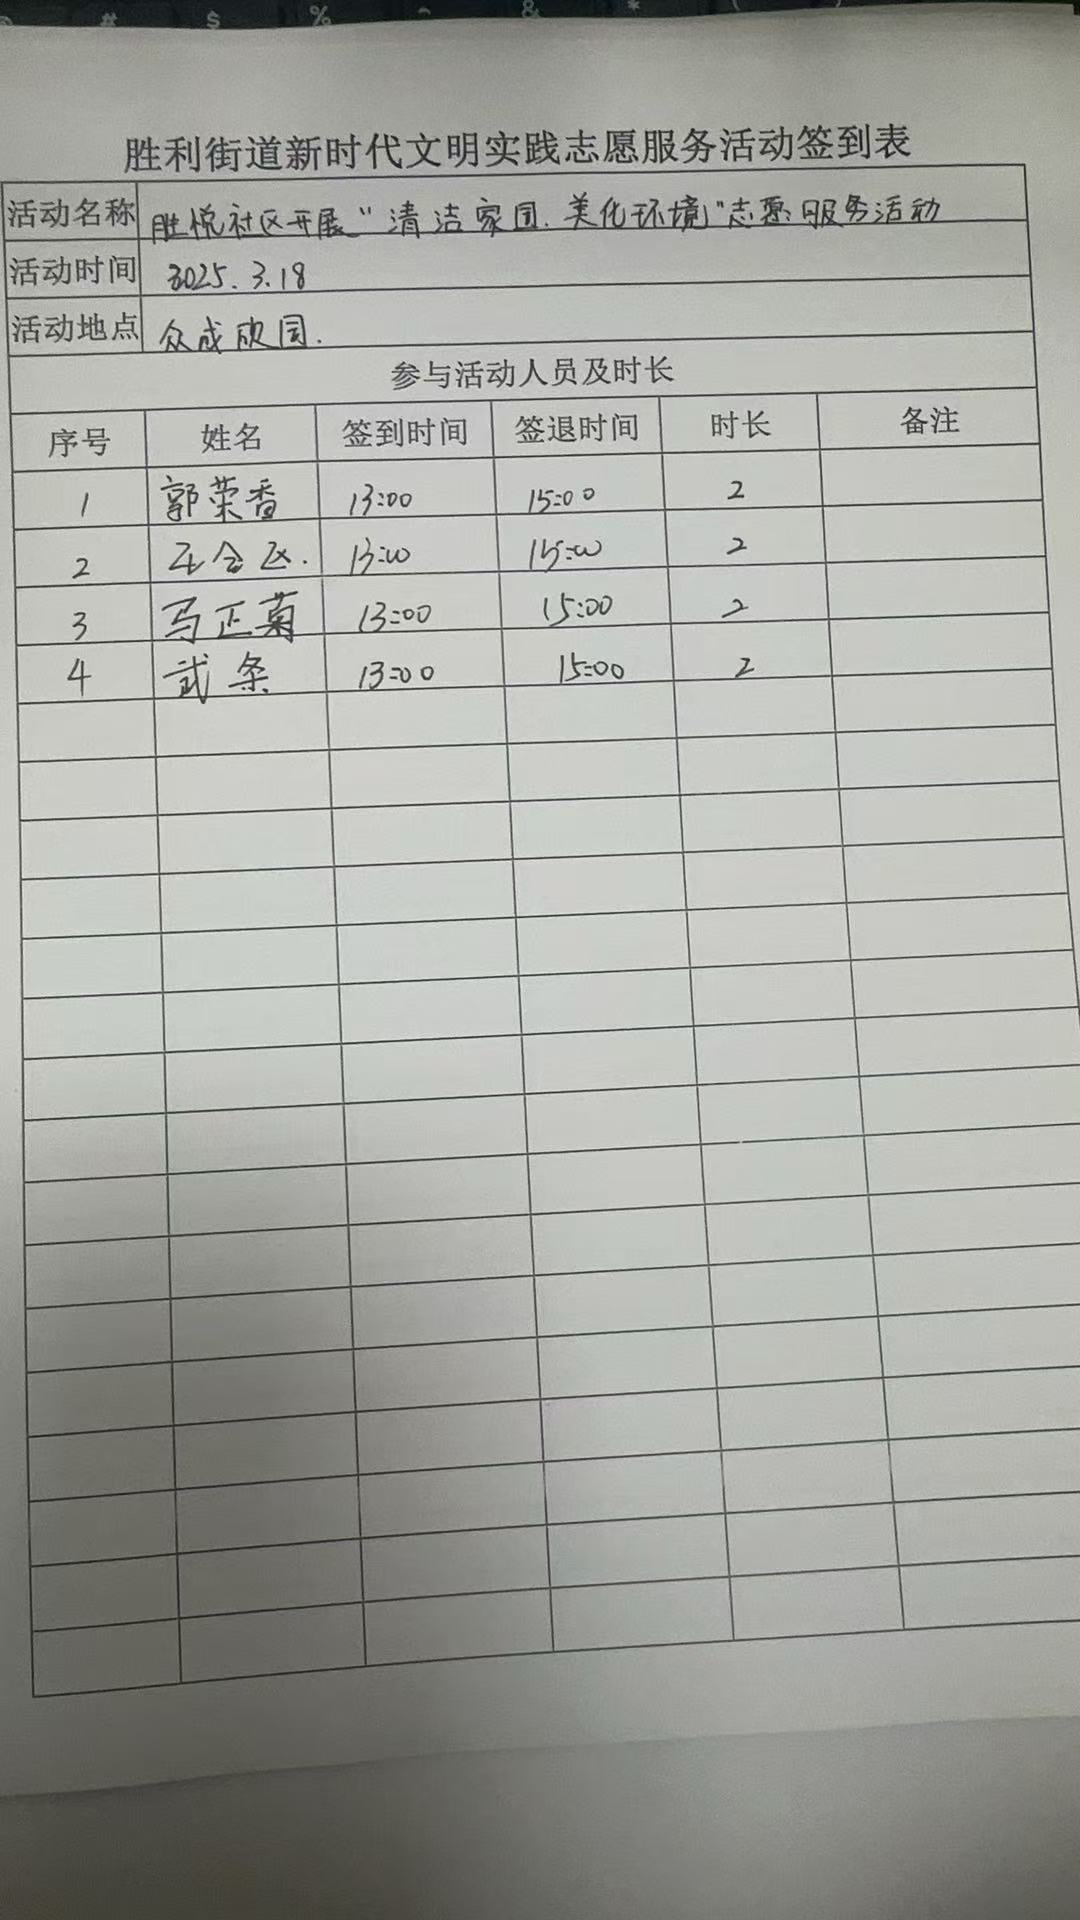 胜利街道新时代文明实践志愿服务活动签到表
活动名称 胜悦社区开展“清洁家园.美化环境”志愿服务活动
活动时间 2025.3.18
活动地点 众成欣园.
参与活动人员及时长
序号 姓名 签到时间 签退时间 时长 备注
1 郭荣香 13:00 15:00 2
2 13:00 15:00 2
3 马正菊 13:00 15:00 2
4 武条 13:00 15:00 2